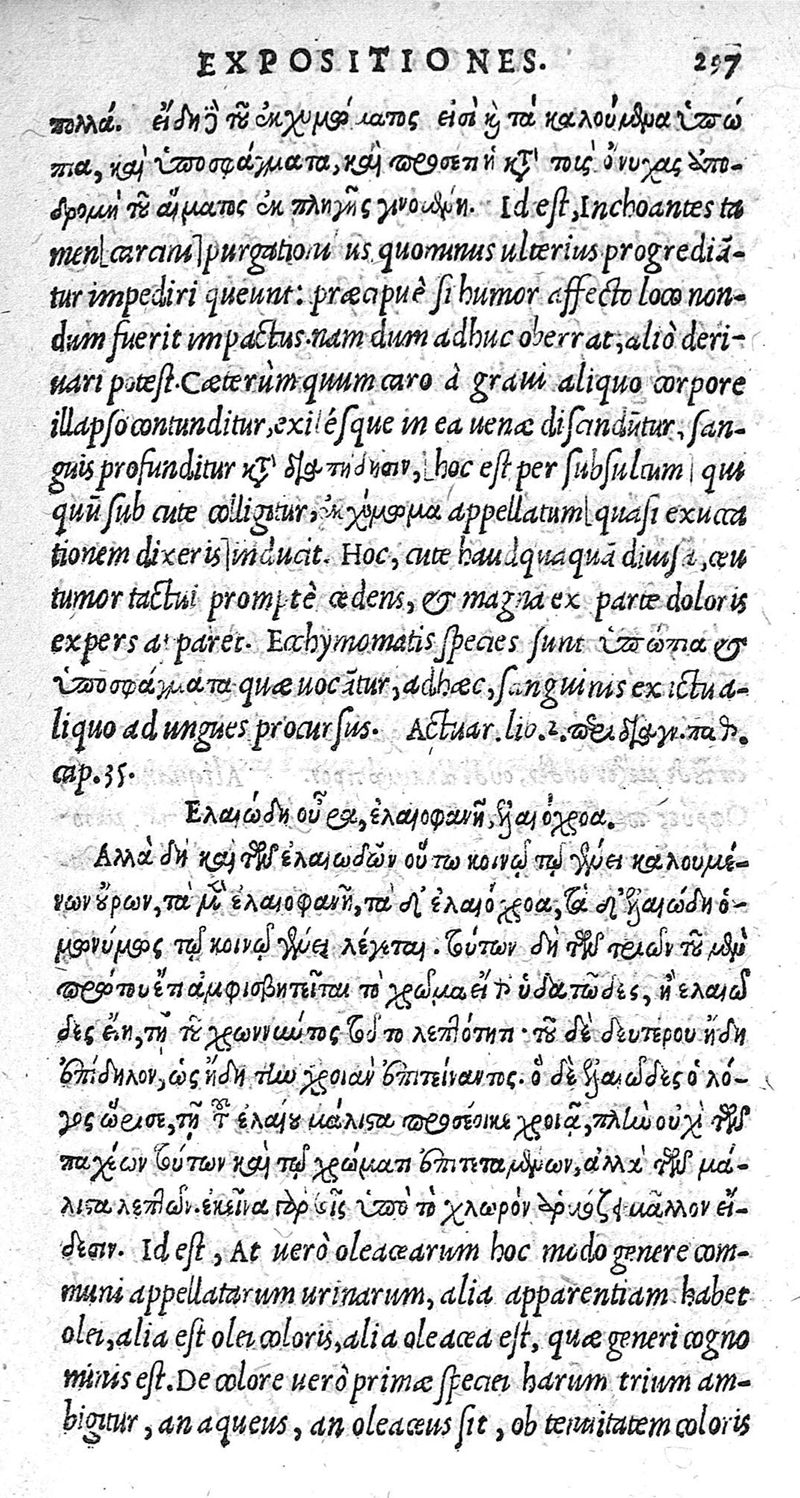 EXPOSITIONES. 297
πολλά. εἴδη δὲ τοῦ ἐκχυμώματος εἰσὶ καὶ τὰ καλούμενα ὑπώ
πια, καὶ ὑποσφάγματα, καὶ προσέτι ἡ κατὰ τοὺς ὄνυχας ὑπο-
δρομὴ τοῦ αἵματος ἐκ πληγῆς γινομένη. Id est, Inchoantes ta
men [carcini] purgationibus quominus ulterius progrediã-
tur impediri queunt: præcipuè si humor affecto loco non-
dum fuerit impactus. nam dum adhuc oberrat, aliò deri-
uari potest. Cæterùm quum caro à graui aliquo corpore
illapso contunditur, exilésque in ea uenæ discindũtur, san-
guis profunditur κατὰ διαπήδησιν, [hoc est per subsultum] qui
quũ sub cute colligitur, ἐκχύμωμα appellatum [quasi exucca
tionem dixeris] inducit. Hoc, cute haudquaquã diuisa, ceu
tumor tactui promptè cedens, & magna ex parte doloris
expers apparet. Ecchymomatis species sunt ὑπώπια &
ὑποσφάγματα quæ uocãtur, adhæc, sanguinis ex ictu a-
liquo ad ungues procursus. Actuar. lib. 2. περὶ διαγν. παθ.
cap. 35.
Ελαιώδη οὖρα, ἐλαιοφανῆ, ἐλαιόχροα.
Αλλὰ δὴ καὶ τῶν ἐλαιωδῶν οὕτω κοινῷ τῷ γένει καλουμέ-
νων οὔρων, τὰ μὲν ἐλαιοφανῆ, τὰ δ' ἐλαιόχροα, τὰ δ' ἐλαιώδη ὁ-
μωνύμως τῷ κοινῷ γένει λέγεται. τούτων δὴ τῶν τριῶν τοῦ μὲν
πρώτου ἔτι ἀμφισβητεῖται τὸ χρῶμα εἴτε ὑδατῶδες, ἢ ελαιῶ
δες εἴη, τῇ τοῦ χρωννύοντος τοῦτο λεπτότητι· τοῦ δὲ δευτέρου ἤδη
ἐπίδηλον, ὡς ἤδη τὴν χροιὰν ἐπιτείναντος. ὃ δὲ ἐλαιῶδες ὁ λό-
γος ὥρισε, τῇ τοῦ ἐλαίου μάλιστα προσέοικε χροιᾷ, πλὴν οὐχὶ τῶν
παχέων τούτων καὶ τῷ χρώματι ἐπιτεταμένων, ἀλλὰ τῶν μά-
λιστα λεπτῶν. ἐκεῖνα γὰρ εἰς ὑπὸ τὸ χλωρὸν μᾶλλον εἴ-
δεσιν. Id est, At uerò oleacearum hoc modo genere com-
muni appellatarum urinarum, alia apparentiam habet
olei, alia est olei coloris, alia oleacea est, quæ generi cogno
minis est. De colore uerò primæ speciei harum trium am-
bigitur, an aqueus, an oleaceus sit, ob tenuitatem coloris